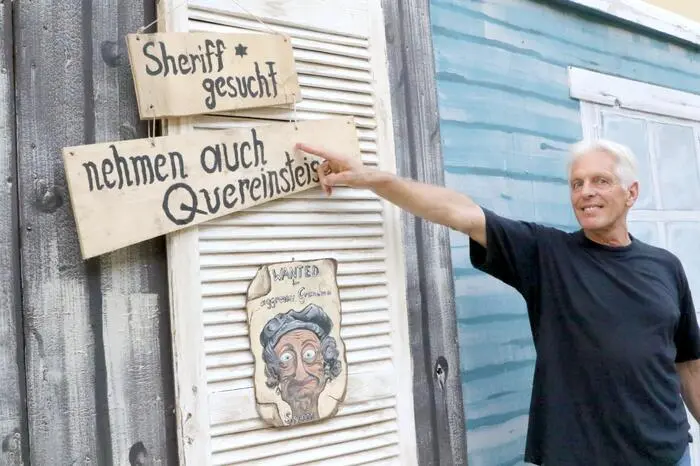 Sheriff *
gesucht
nehmen auch
Quereinsteig
WANTED
aggressive Grandma